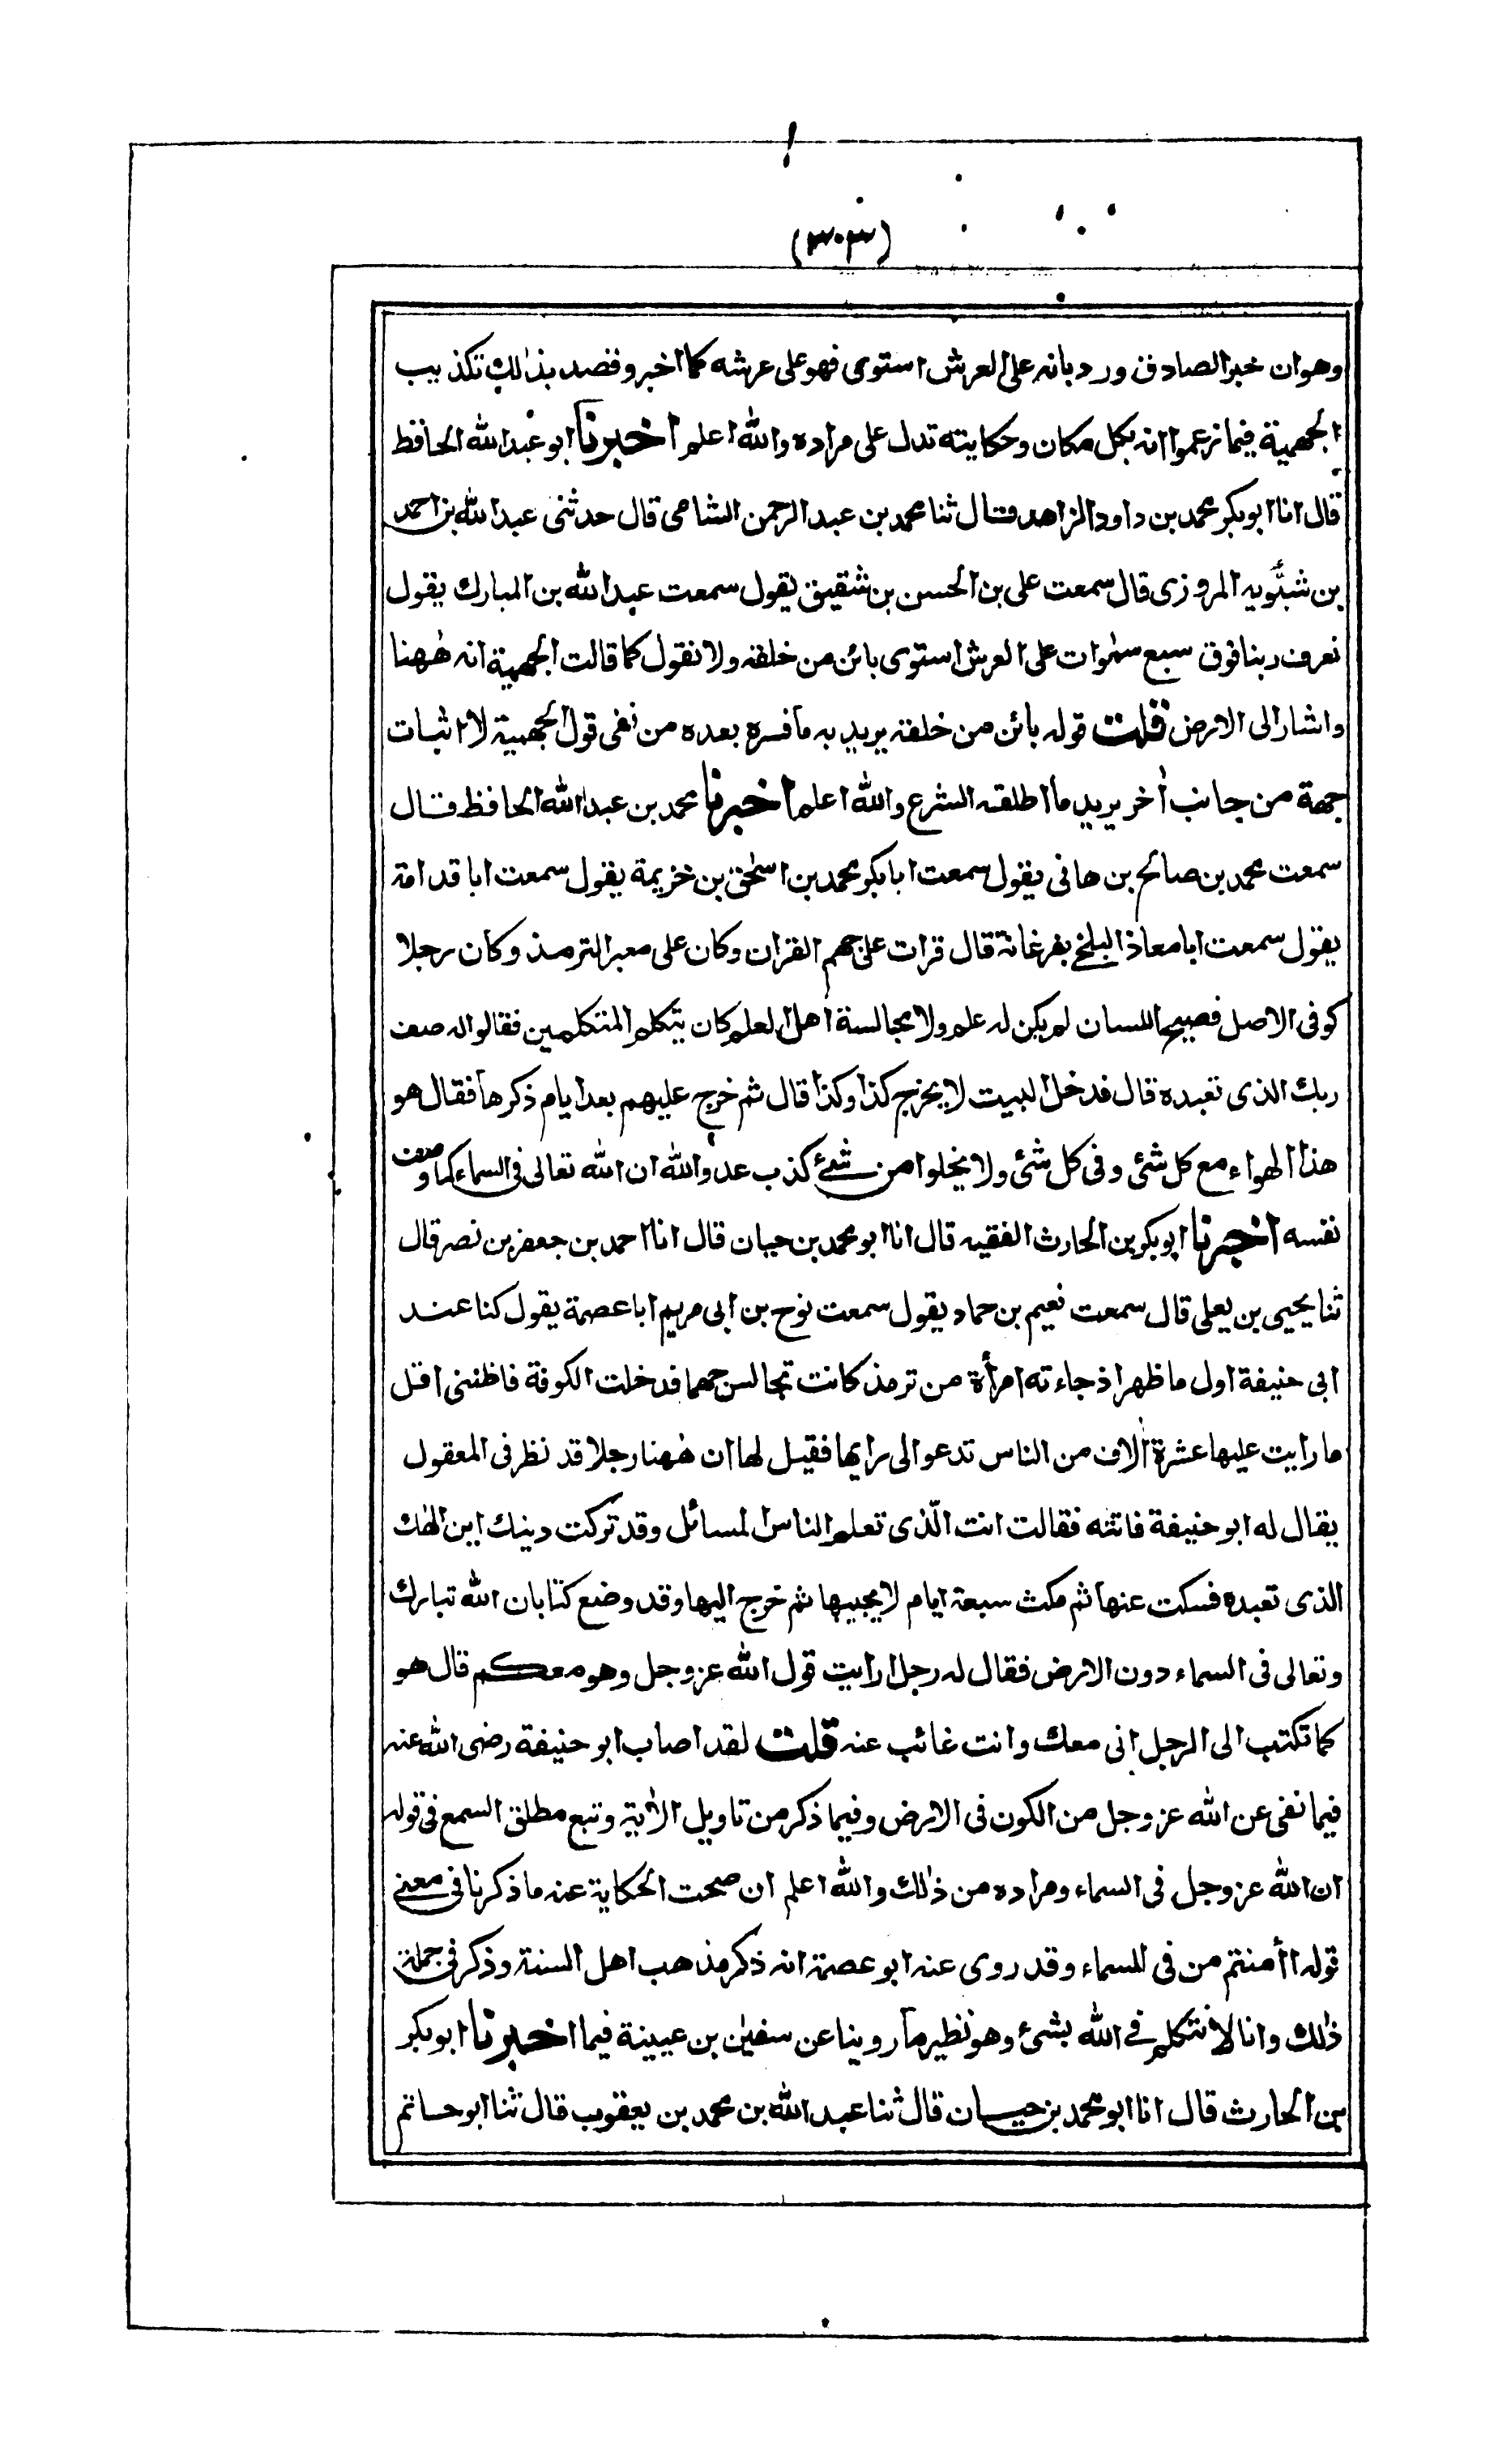 (٣٠٣)
وهو ان خبر الصادق ورد بانه على العرش استوى فهو على عرشه كما اخبر وقصد بذٰلك تكذيب
الجهمية فيما زعموا انه بكل مكان وحكايته تدل على مراده والله اعلم اخبرنا ابو عبد الله الحافظ
قال انا ابو بكر محمد بن داود الزاهد قال ثنا محمد بن عبد الرحمن الشامى قال حدثنى عبد الله بن احمد
بن شبُّويه المروزى قال سمعت على بن الحسن بن شقيق يقول سمعت عبد الله بن المبارك يقول
نعرف ربنا فوق سبع سمٰوات على العرش استوى بائن من خلقه ولا نقول كما قالت الجهمية انه هٰهنا
واشار الى الارض قلت قوله بائن من خلقه يريد به ما فسره بعده من نفى قول الجهمية لا اثبات
جهة من جانب اٰخر يريد ما اطلقه الشرع والله اعلم اخبرنا محمد بن عبد الله الحافظ قال
سمعت محمد بن صالح بن هانى يقول سمعت ابا بكر محمد بن اسحٰق بن خزيمة يقول سمعت ابا قدامة
يقول سمعت ابا معاذ البلخى بفرغانة قال قرات على جهم القران وكان على معبر الترمذ وكان رجلا
كوفى الاصل فصيح اللسان لم يكن له علم ولا مجالسة اهل العلم كان يتكلم المتكلمين فقالوا له صف
ربك الذى تعبده قال فدخل البيت لا يخرج كذا وكذا قال ثم خرج عليهم بعد ايام ذكرها فقال هو
هذا الهواء مع كل شئ وفى كل شئ ولا يخلوا من شئ كذب عدو الله ان الله تعالى فى السماء كما وصف
نفسه اخبرنا ابو بكر بن الحارث الفقيه قال انا ابو محمد بن حيان قال انا احمد بن جعفر بن نصر قال
ثنا يحيى بن يعلى قال سمعت نعيم بن حماد يقول سمعت نوح بن ابى مريم ابا عصمة يقول كنا عند
ابى حنيفة اول ما ظهر اذ جاءته امرأة من ترمذ كانت تجالس جهما فدخلت الكوفة فاظننى اقل
ما رايت عليها عشرة اٰلاف من الناس تدعو الى رايها فقيل لها ان هٰهنا رجلا قد نظر فى المعقول
يقال له ابو حنيفة فاتته فقالت انت الّذى تعلم الناس المسائل وقد تركت دينك اين الهك
الذى تعبده فسكت عنها ثم مكث سبعة ايام لا يجيبها ثم خرج اليها وقد وضع كتابا ان الله تبارك
وتعالى فى السماء دون الارض فقال له رجل ارايت قول الله عز وجل وهو معكم قال هو
كما تكتب الى الرجل انى معك وانت غائب عنه قلت لقد اصاب ابو حنيفة رضى الله عنه
فيما نفى عن الله عز وجل من الكون فى الارض وفيما ذكر من تاويل الاٰية وتبع مطلق السمع فى قوله
ان الله عز وجل فى السماء ومراده من ذٰلك والله اعلم ان صحت الحكاية عنه ما ذكرنا فى معنى
قوله اأمنتم من فى السماء وقد روى عنه ابو عصمة انه ذكر مذهب اهل السنة وذكر فى جملة
ذٰلك وانا لا نتكلم فى الله بشئ وهو نظير ما روينا عن سفيٰن بن عيينة فيما اخبرنا ابو بكر
بن الحارث قال انا ابو محمد بن حيان قال ثنا عبد الله بن محمد بن يعقوب قال ثنا ابو حاتم